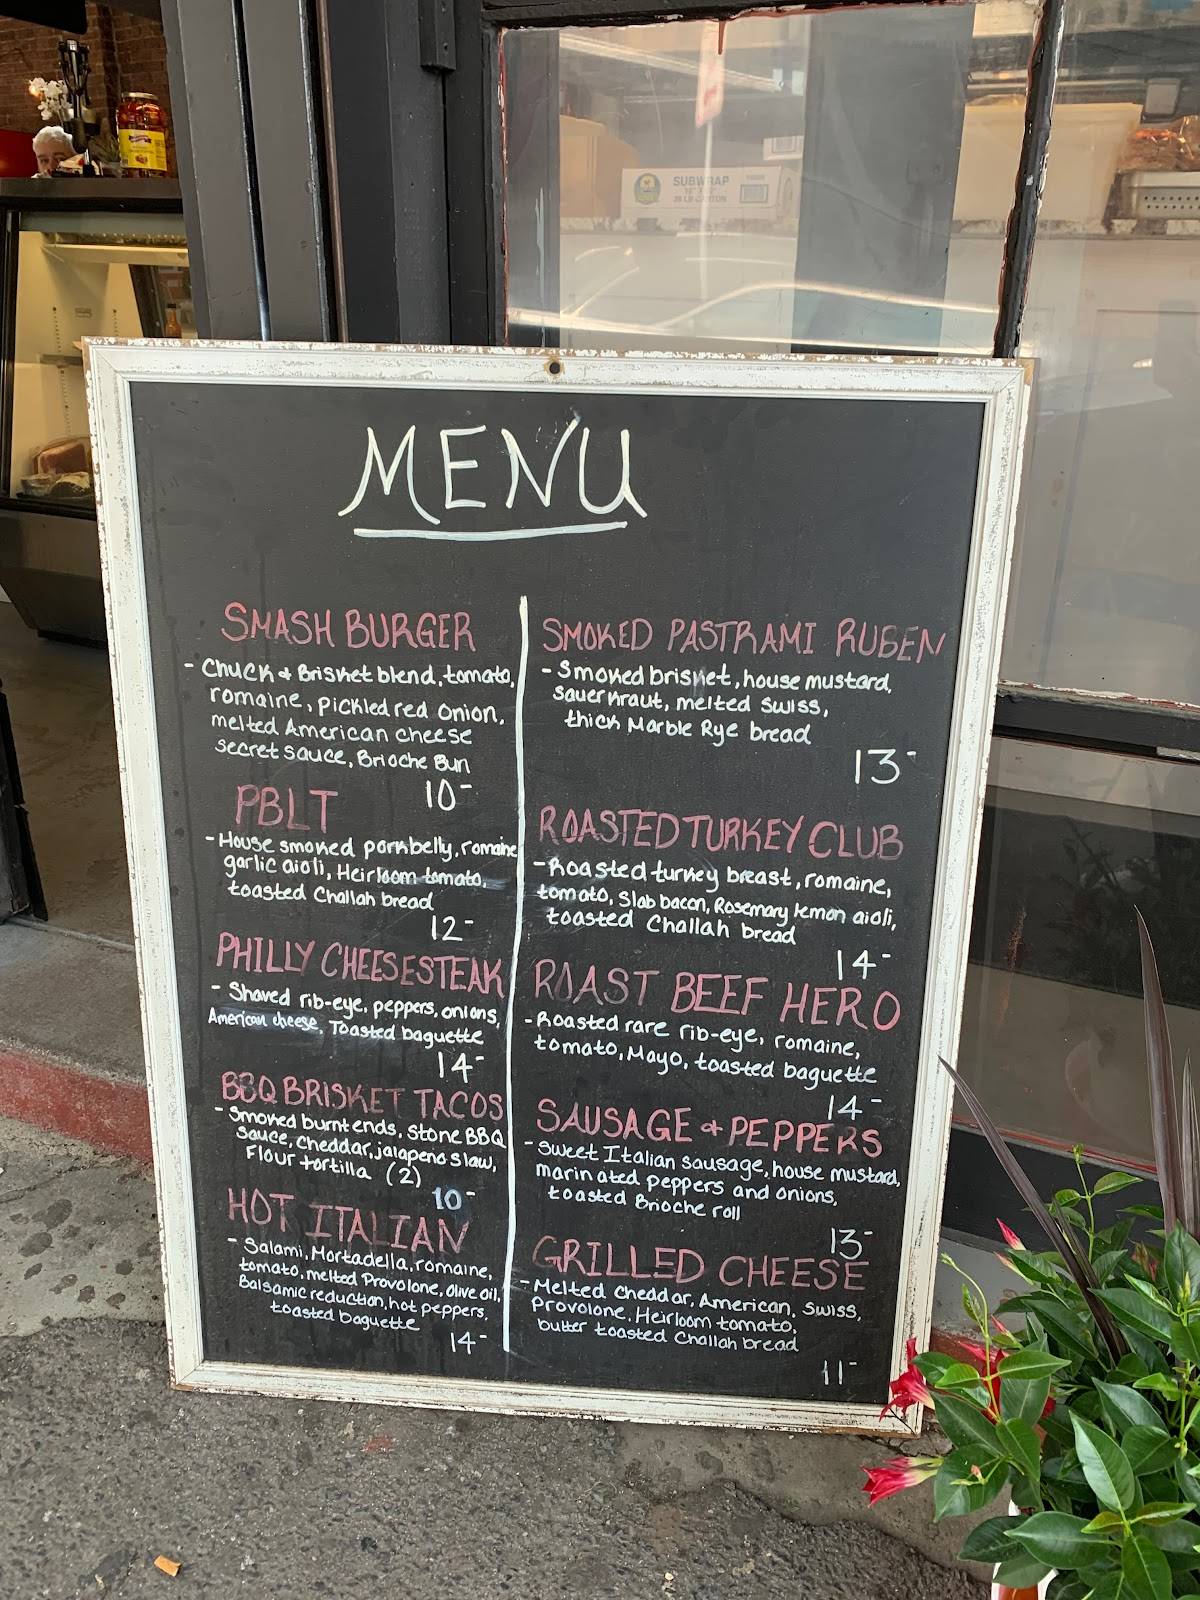 SUBWRAP
MENU
SMASH BURGER
- Chuck & Brisket blend, tomato,
romaine, pickled red onion,
melted American cheese
secret sauce, Brioche Bun
10-
PBLT
- House smoked porkbelly, romaine
garlic aioli, Heirloom tomato,
toasted Challah bread
12-
PHILLY CHEESESTEAK
- Shaved rib-eye, peppers, onions,
American cheese, Toasted baguette
14-
BBQ BRISKET TACOS
- Smoked burnt ends, Stone BBQ
Sauce, cheddar, jalapeno slaw,
Flour tortilla (2)
10-
HOT ITALIAN
- Salami, Mortadella, romaine,
tomato, melted Provolone, olive oil,
Balsamic reduction, hot peppers,
toasted baguette
14-
SMOKED PASTRAMI RUBEN
- Smoked brisket, house mustard,
sauerkraut, melted Swiss,
thick Marble Rye bread
13-
ROASTED TURKEY CLUB
- Roasted turkey breast, romaine,
tomato, Slab bacon, Rosemary lemon aioli,
toasted Challah bread
14-
ROAST BEEF HERO
- Roasted rare rib-eye, romaine,
tomato, Mayo, toasted baguette
14-
SAUSAGE & PEPPERS
- Sweet Italian sausage, house mustard,
marinated peppers and onions,
toasted Brioche roll
13-
GRILLED CHEESE
- Melted cheddar, American, Swiss,
Provolone, Heirloom tomato,
butter toasted Challah bread
11-